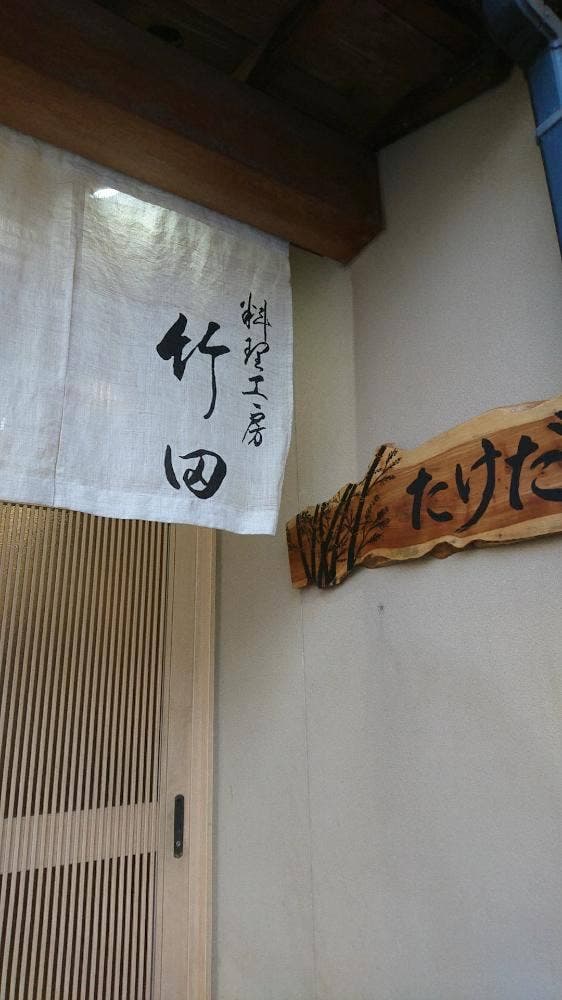 料理工房
竹田
たけだ